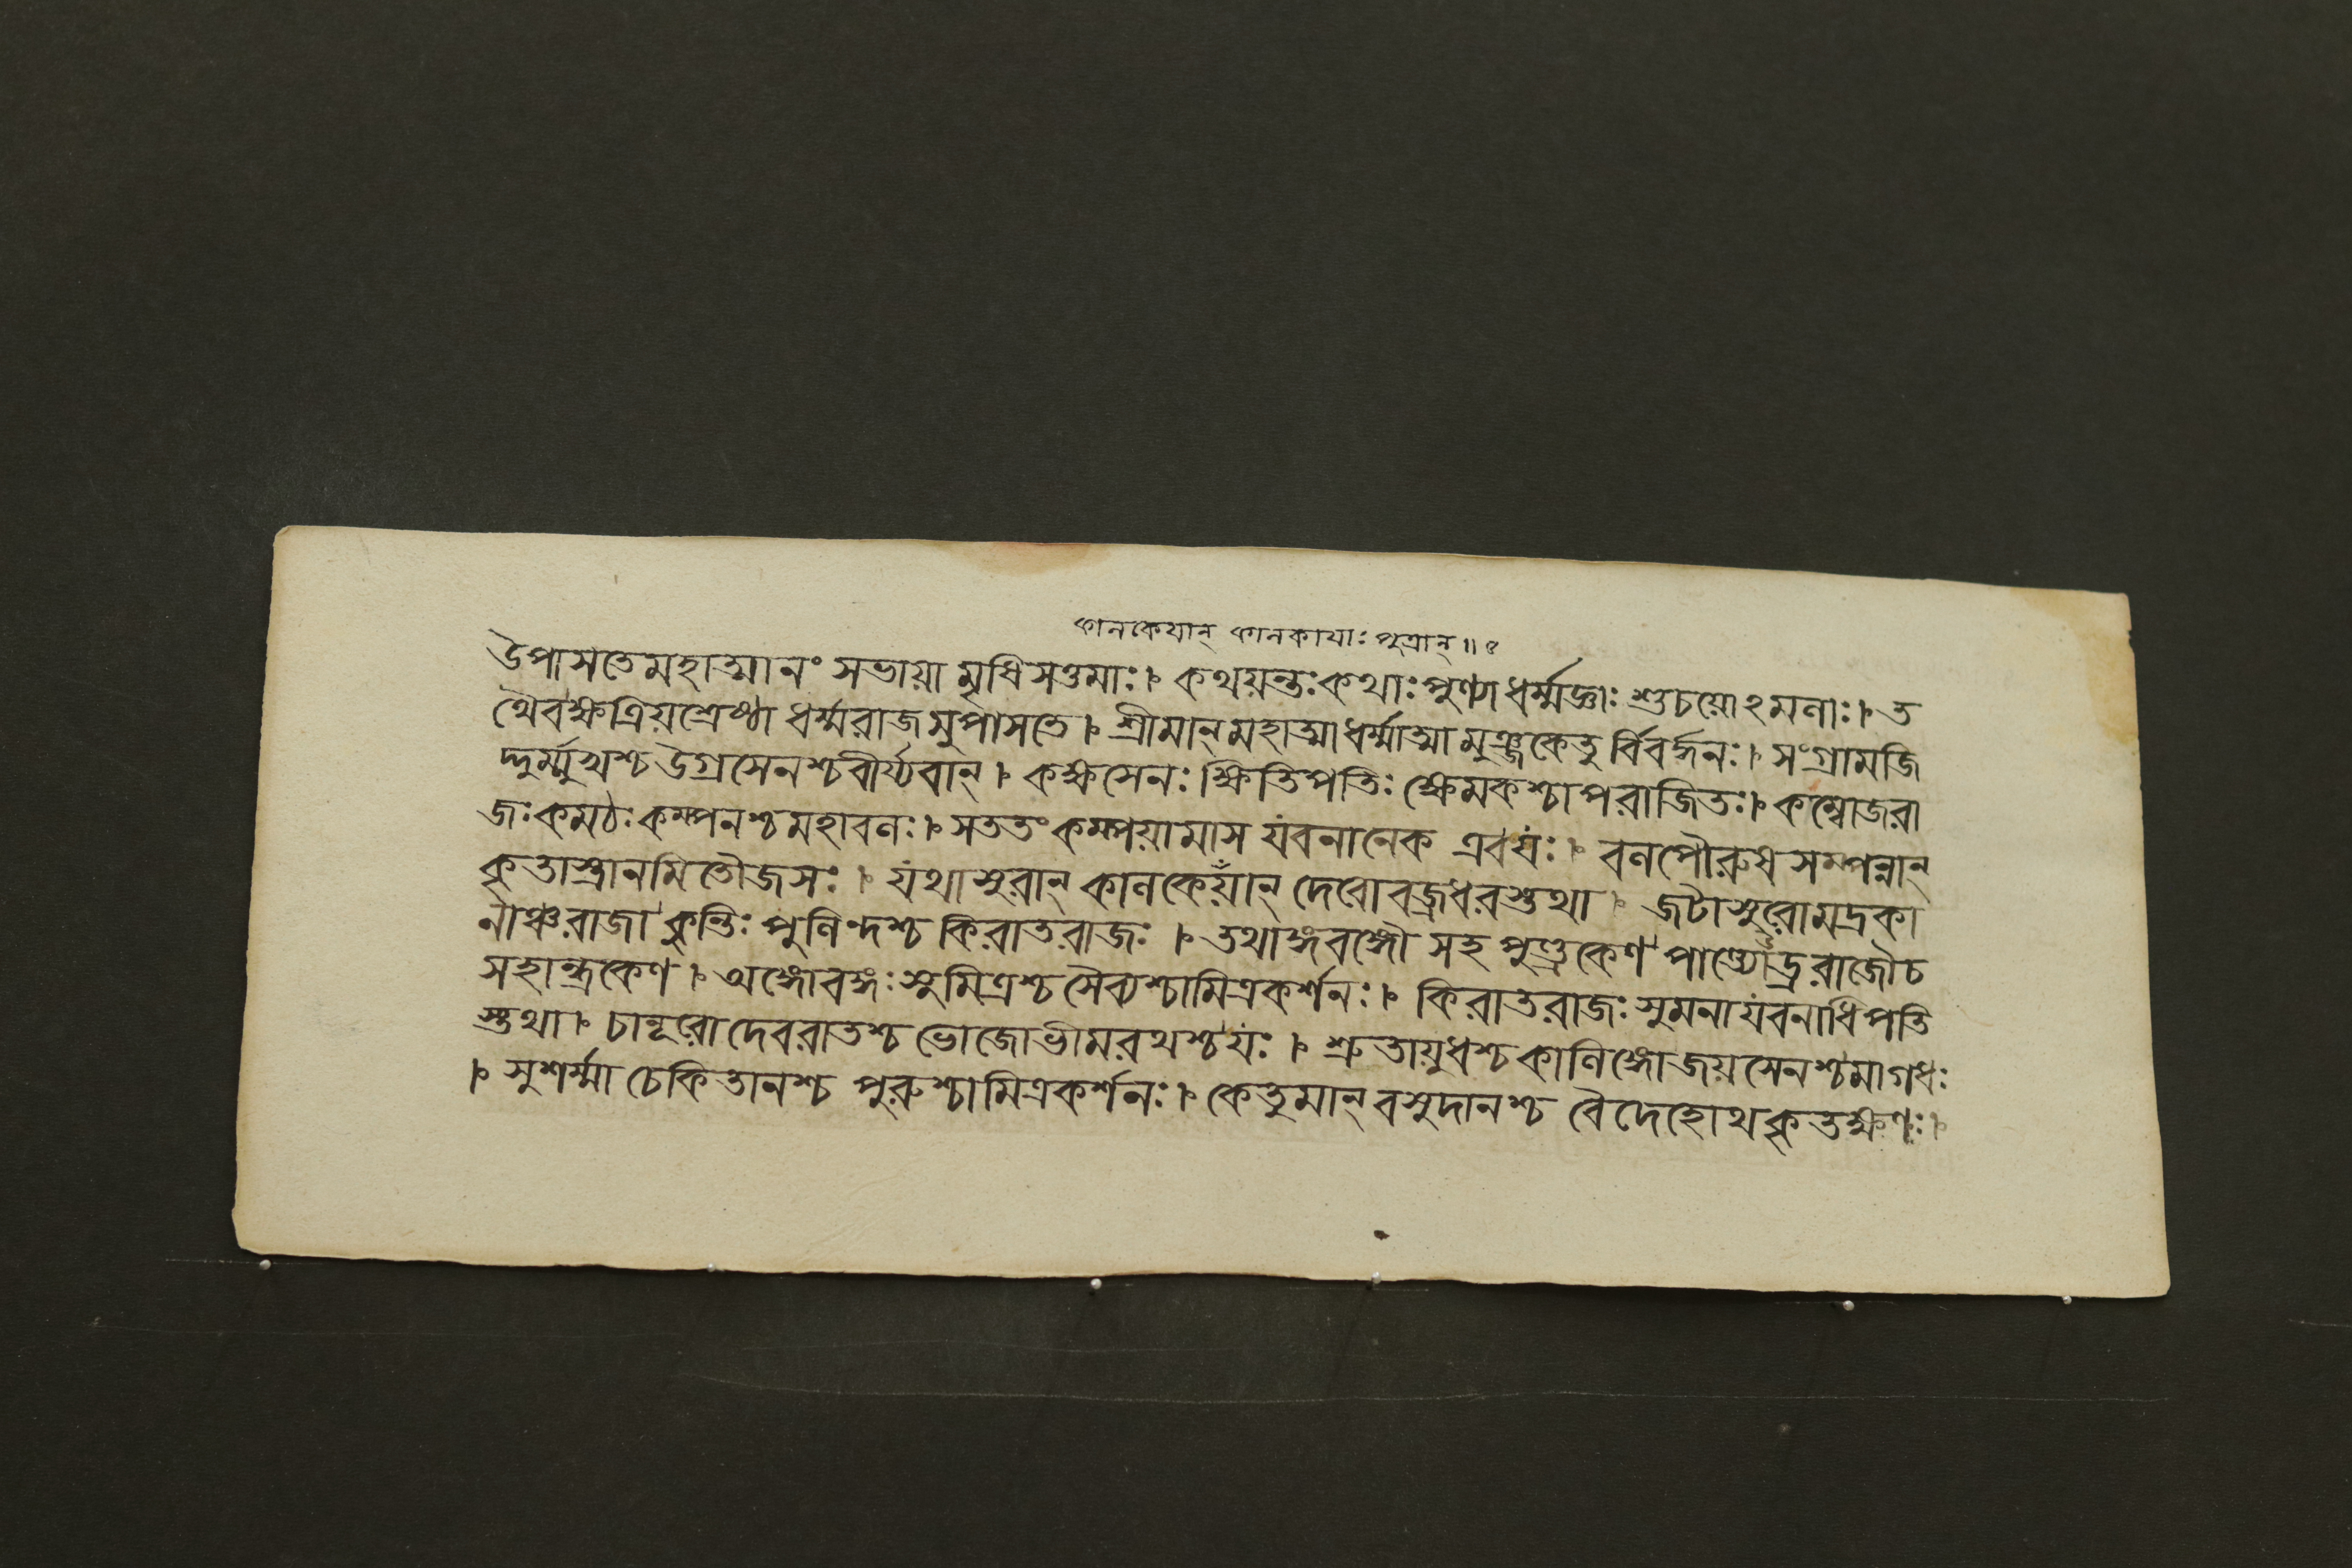 কানকেযান্ কানকাযাঃ পুত্রান্॥৫
উপাসতেমহাত্মানং সভাযামৃষিসত্তমাঃ। কথযন্তঃকথাঃপুণ্যাধর্ম্মজ্ঞাঃ শুচযোঽমলাঃ। ত
থৈবক্ষত্রিযশ্রেষ্ঠা ধর্ম্মরাজমুপাসতে। শ্রীমান্মহাত্মাধর্ম্মাত্মা মুঞ্জকেতুর্বিবর্দ্ধনঃ। সংগ্রামজি
দ্দুর্ম্মুখশ্চউগ্রসেনশ্চবীর্য্যবান্। কক্ষসেনঃ ক্ষিতিপতিঃ ক্ষেমকশ্চাপরাজিতঃ। কম্বোজরা
জঃকমঠঃকম্পনশ্চমহাবলঃ। সততং কম্পযামাস যবনানেক এবযঃ। বলপৌরুষসম্পন্নান্
কৃতাস্ত্রানমিতৌজসঃ। যথাসুরান্ কালকেযান্ দেবোবজ্রধরস্তথা। জটাসুরোমদ্রকা
নাঞ্চরাজা কুন্তিঃ পুলিন্দশ্চ কিরাতরাজঃ। তথাঙ্গবঙ্গৌ সহ পুণ্ড্রকেণ পাণ্ড্যোড্ররাজৌচ
সহান্ধ্রকেণ। অঙ্গোবঙ্গঃসুমিত্রশ্চ সৈব্যশ্চামিত্রকর্শনঃ। কিরাতরাজঃ সুমনাযবনাধিপতি
স্তথা। চানূরোদেবরাতশ্চ ভোজোভীমরথশ্চযঃ। শ্রুতাযুধশ্চকালিঙ্গোজযসেনশ্চমাগধঃ
। সুশর্ম্মা চেকিতানশ্চ পুরুশ্চামিত্রকর্শনঃ। কেতুমান্ বসুদানশ্চ বৈদেহোথকৃতক্ষণঃ।